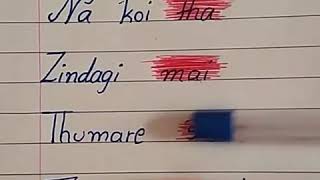 Na koi tha
Zindagi mai
Thumare